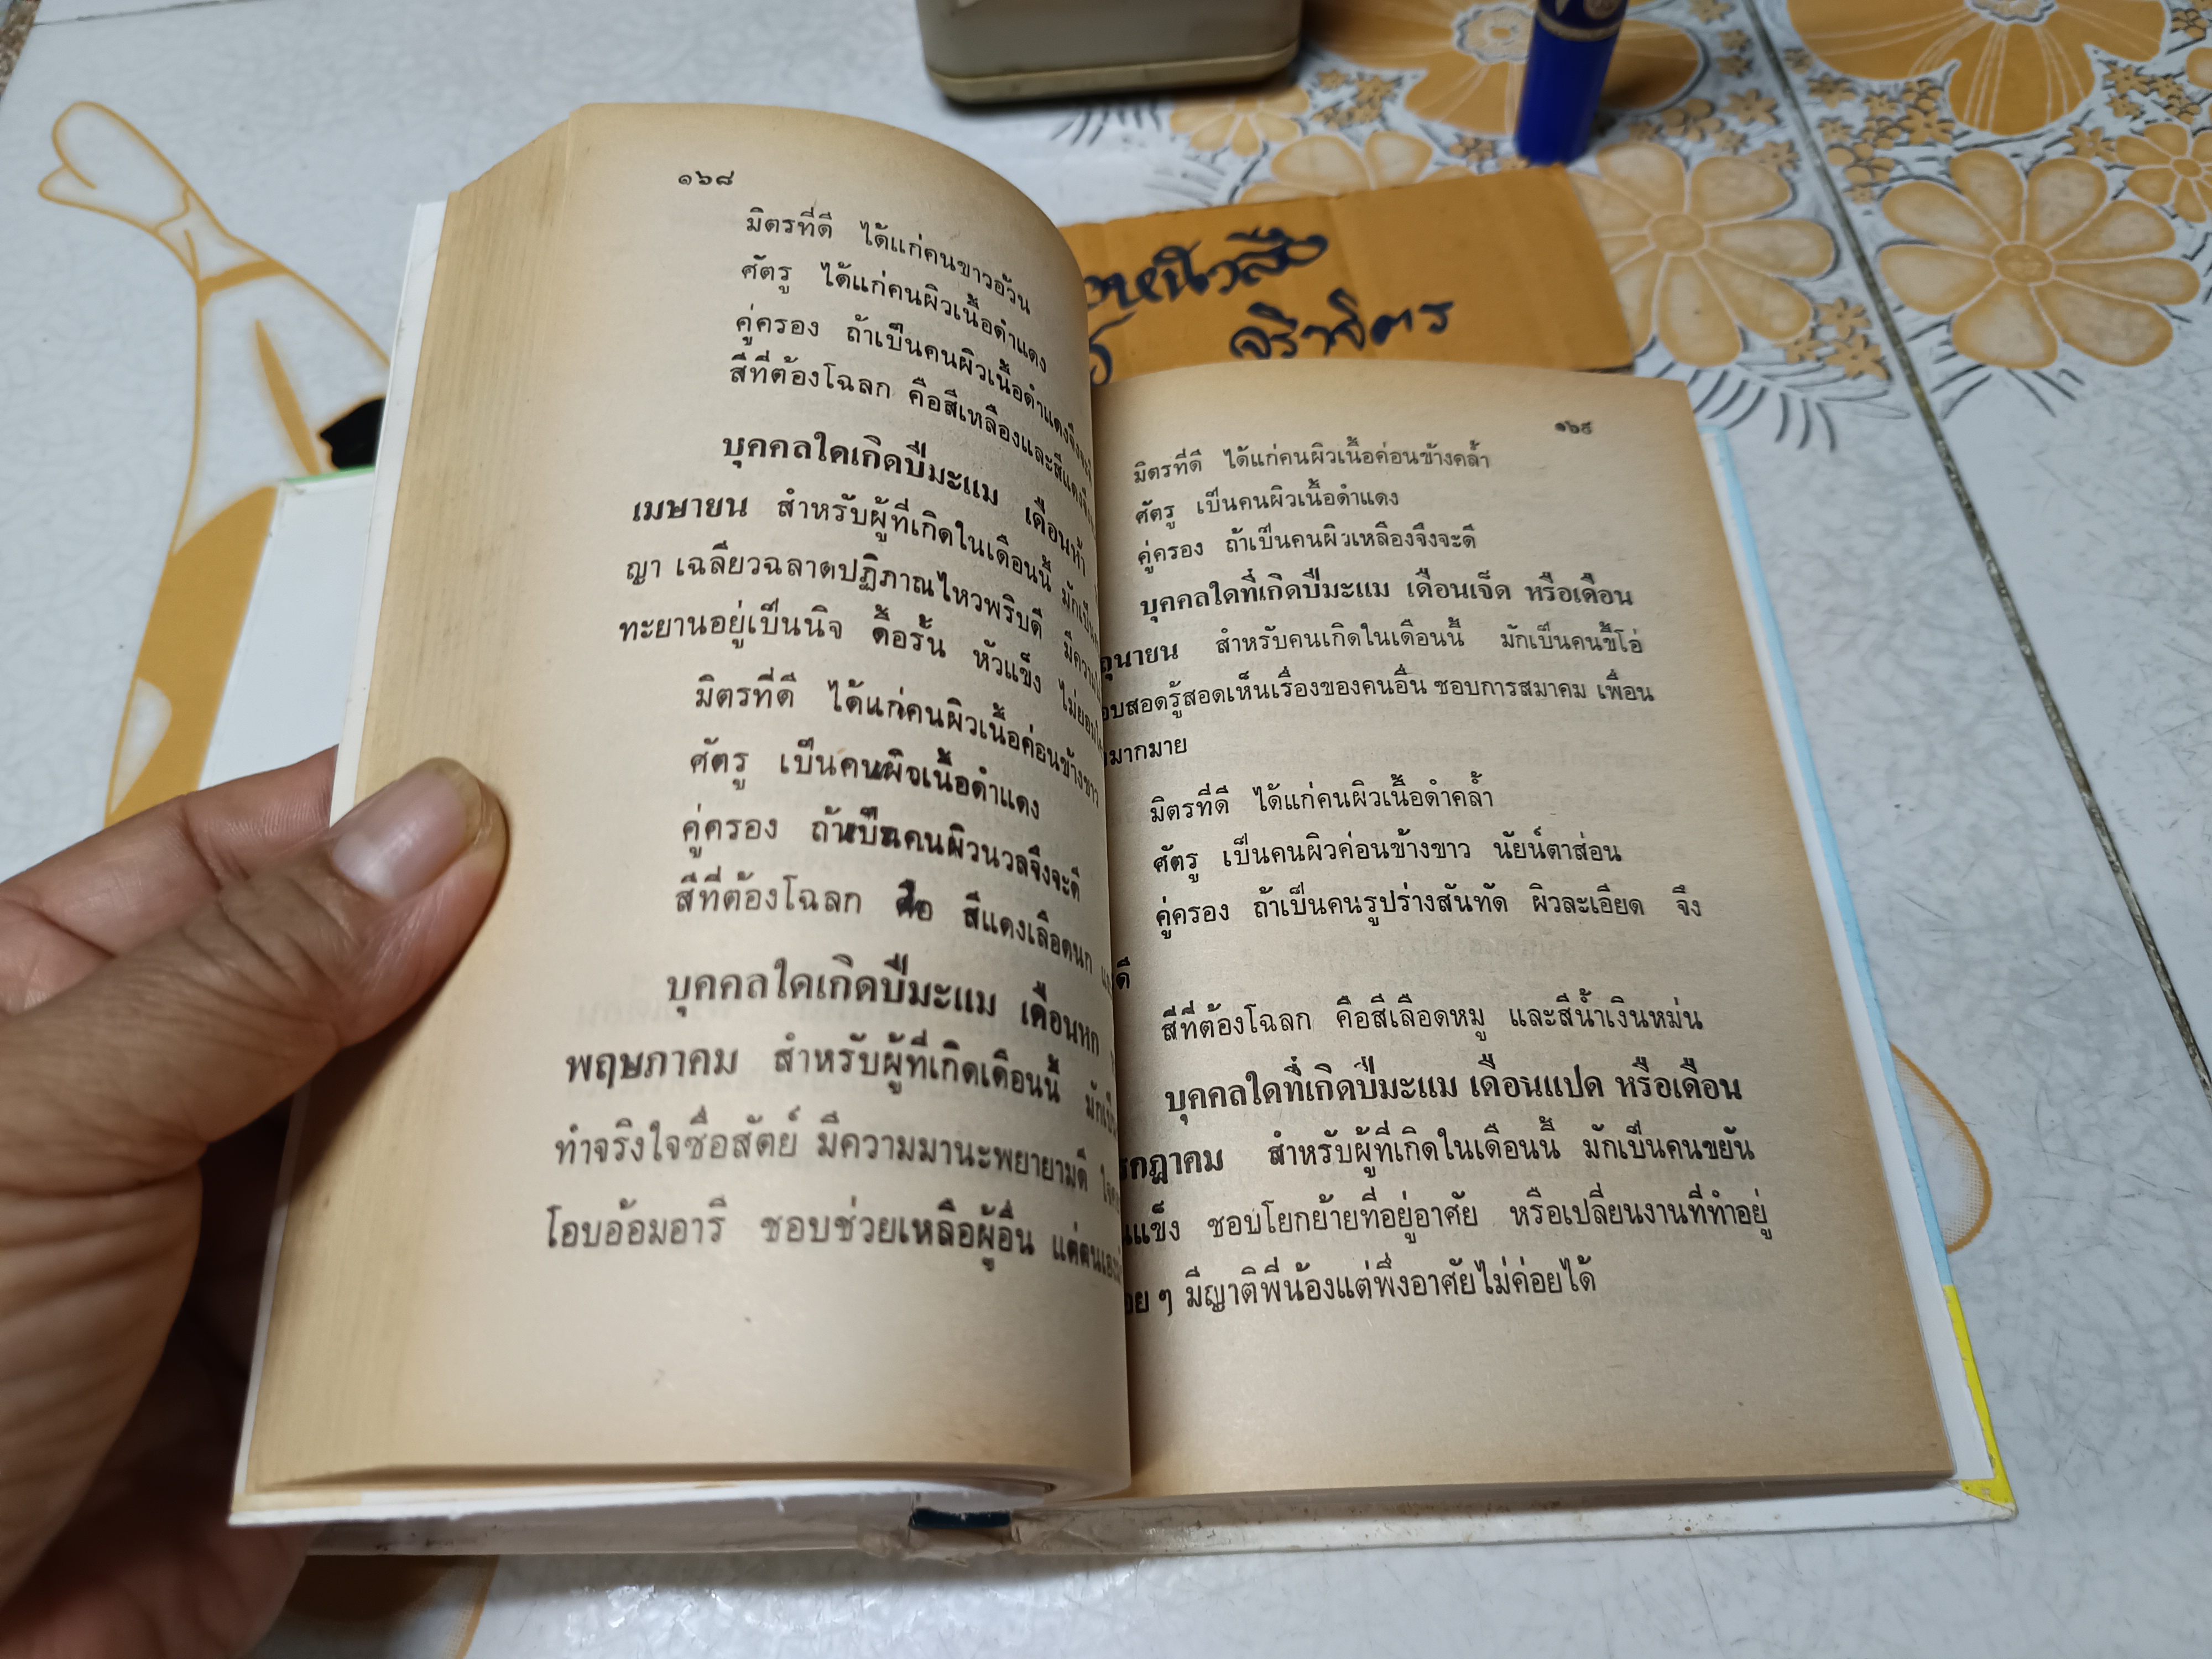 ๑๖๘
มิตรที่ดี ได้แก่คนขาวอ้วน
ศัตรู ได้แก่คนผิวเนื้อดำแดง
คู่ครอง ถ้าเป็นคนผิวเนื้อดำแดงจึงจะ
สีที่ต้องโฉลก คือสีเหลืองและสีแดง
บุคคลใดเกิดปีมะแม เดือนห้า
เมษายน สำหรับผู้ที่เกิดในเดือนนี้ มักเป็น
ญา เฉลียวฉลาดปฏิภาณไหวพริบดี มีความ
ทะยานอยู่เป็นนิจ ดื้อรั้น หัวแข็ง ไม่ยอม
มิตรที่ดี ได้แก่คนผิวเนื้อค่อนข้างขาว
ศัตรู เป็นคนผิวเนื้อดำแดง
คู่ครอง ถ้าเป็นคนผิวนวลจึงจะดี
สีที่ต้องโฉลก คือ สีแดงเลือดนก
บุคคลใดเกิดปีมะแม เดือนหก
พฤษภาคม สำหรับผู้ที่เกิดเดือนนี้ มักเป็น
ทำจริงใจซื่อสัตย์ มีความมานะพยายามดี
โอบอ้อมอารี ชอบช่วยเหลือผู้อื่น แต่ตนเอง
๑๖๙
มิตรที่ดี ได้แก่คนผิวเนื้อค่อนข้างคล้ำ
ศัตรู เป็นคนผิวเนื้อดำแดง
คู่ครอง ถ้าเป็นคนผิวเหลืองจึงจะดี
บุคคลใดที่เกิดปีมะแม เดือนเจ็ด หรือเดือน
ถุนายน สำหรับคนเกิดในเดือนนี้ มักเป็นคนขี้โอ่
อบสอดรู้สอดเห็นเรื่องของคนอื่น ชอบการสมาคม เพื่อน
มากมาย
มิตรที่ดี ได้แก่คนผิวเนื้อดำคล้ำ
ศัตรู เป็นคนผิวค่อนข้างขาว นัยน์ตาส่อน
คู่ครอง ถ้าเป็นคนรูปร่างสันทัด ผิวละเอียด จึง
ดี
สีที่ต้องโฉลก คือสีเลือดหมู และสีน้ำเงินหม่น
บุคคลใดที่เกิดปีมะแม เดือนแปด หรือเดือน
รกฎาคม สำหรับผู้ที่เกิดในเดือนนี้ มักเป็นคนขยัน
นแข็ง ชอบโยกย้ายที่อยู่อาศัย หรือเปลี่ยนงานที่ทำอยู่
อย ๆ มีญาติพี่น้องแต่พึ่งอาศัยไม่ค่อยได้